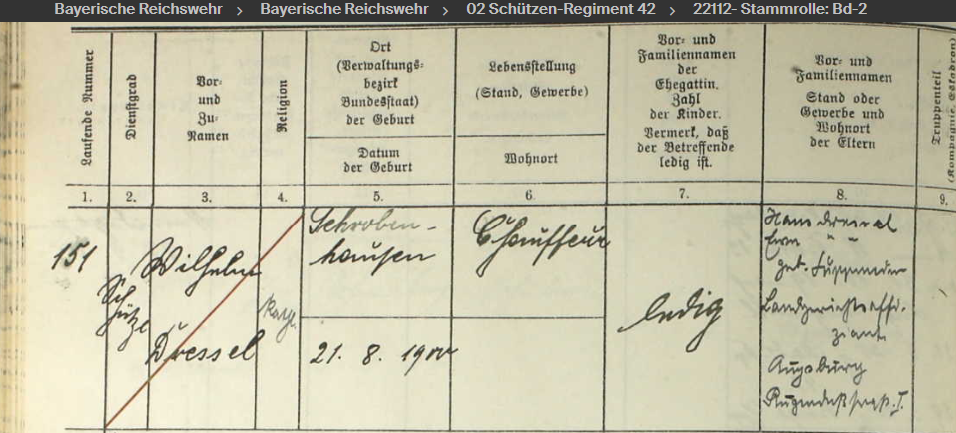 Bayerische Reichswehr > Bayerische Reichswehr > 02 Schützen-Regiment 42 > 22112- Stammrolle: Bd-2
Laufende Nummer
Dienstgrad
Vor-
und
Zu-
Namen
Religion
Ort
(Verwaltungs-
bezirk
Bundesstaat)
der Geburt
Datum
der Geburt
Lebensstellung
(Stand, Gewerbe)
Wohnort
Vor- und
Familiennamen
der
Ehegattin.
Zahl
der Kinder.
Vermerk, daß
der Betreffende
ledig ist.
Vor- und
Familiennamen
Stand oder
Gewerbe und
Wohnort
der Eltern
Truppenteil
(Kompagnie, Eskadron)
1. 2. 3. 4. 5. 6. 7. 8. 9.
151
Schütze
Wilhelm
Dressel
kath.
Schroben-
hausen
21. 8. 1900
Chauffeur
ledig
Hans Dressel
" "
geb.
Landgerichtsoffi-
ziant
Augsburg